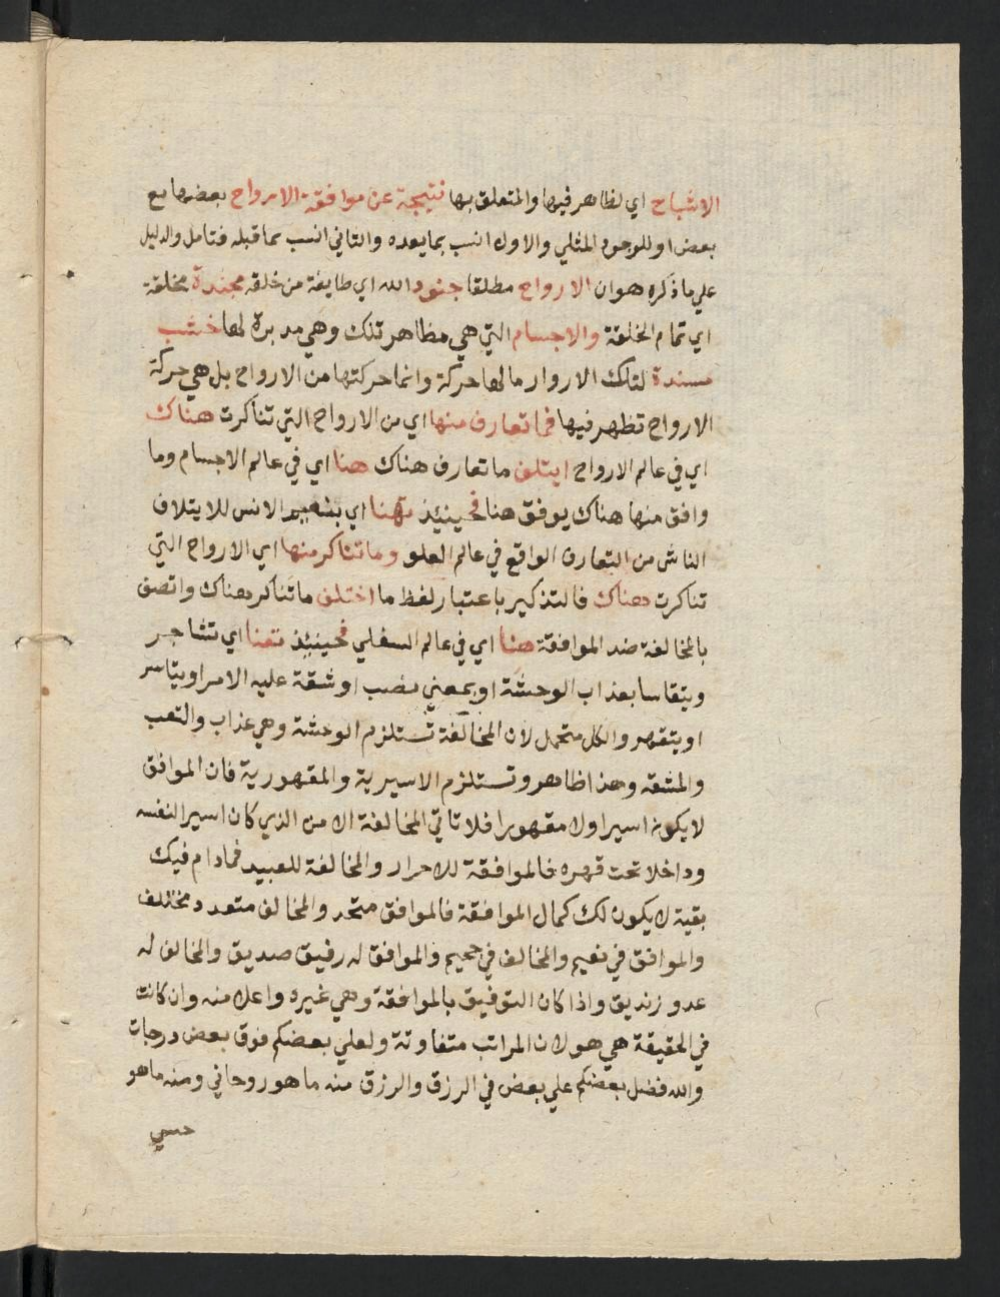 الاشباح اي لظاهر فيها والمتعلق بها نتيجة عن موافقة الارواح بعضها مع
بعض او للوجود المثلي والاول انسب بما بعده والثاني انسب بما قبله فتامل والدليل
علي ما ذكره هو ان الارواح مطلقا جنود الله اي طايفة من خلقه مجندة مخلقة
اي تمام الخلقة والاجسام التي هي مظاهر تلك وهي مدبرة لها خشب
مسندة لتلك الاروار ما لها حركة وانما حركتها من الارواح بل هي حركة
الارواح تظهر فيها فما تعارف منها اي من الارواح التي تناكرت هناك
اي في عالم الارواح ايتلف ما تعارف هناك هنا اي في عالم الاجسام وما
وافق منها هناك يوفق هنا فحينئذ تهنا اي بنعيم الانس للايتلاف
الناش من التعارف الواقع في عالم العلو وما تناكر منها اي الارواح التي
تناكرت هناك فالتذكير باعتبار لفظ ما اختلف ما تناكر هناك واتصف
بالمخالفة ضد الموافقة هنا اي في عالم السفلي فحينئذ تعنا اي تشاجر
ويتقاسا بعذاب الوحشة او بمعني نصب او شقة عليه الامر او يتاسر
او يتقهر والكل متحمل لان المخالفة تستلزم الوحشة وهي عذاب والتعب
والمشقه وهذا ظاهر وتستلزم الاسيرية والمقهورية فان الموافق
لا يكون اسيرا ولا مقهورا فلا تاتي المخالفة الا من الذي كان اسيرا لنفسه
وداخلا تحت قهره فالموافقة للاحرار والمخالفة للعبيد فما دام فيك
بقية لا يكون لك كمال الموافقة فالموافق متحد والمخالف متعدد مختلف
والموافق في نعيم والمخالف في جحيم والموافق له رفيق صديق والمخالف له
عدو زنديق واذا كان التوفيق بالموافقة وهي غيره واعلا منه وان كانت
في الحقيقة هي هو لان المراتب متفاوتة ولعلي بعضكم فوق بعض درجات
والله فضل بعضكم علي بعض في الرزق والرزق منه ما هو روحاني ومنه ما هو
حسي